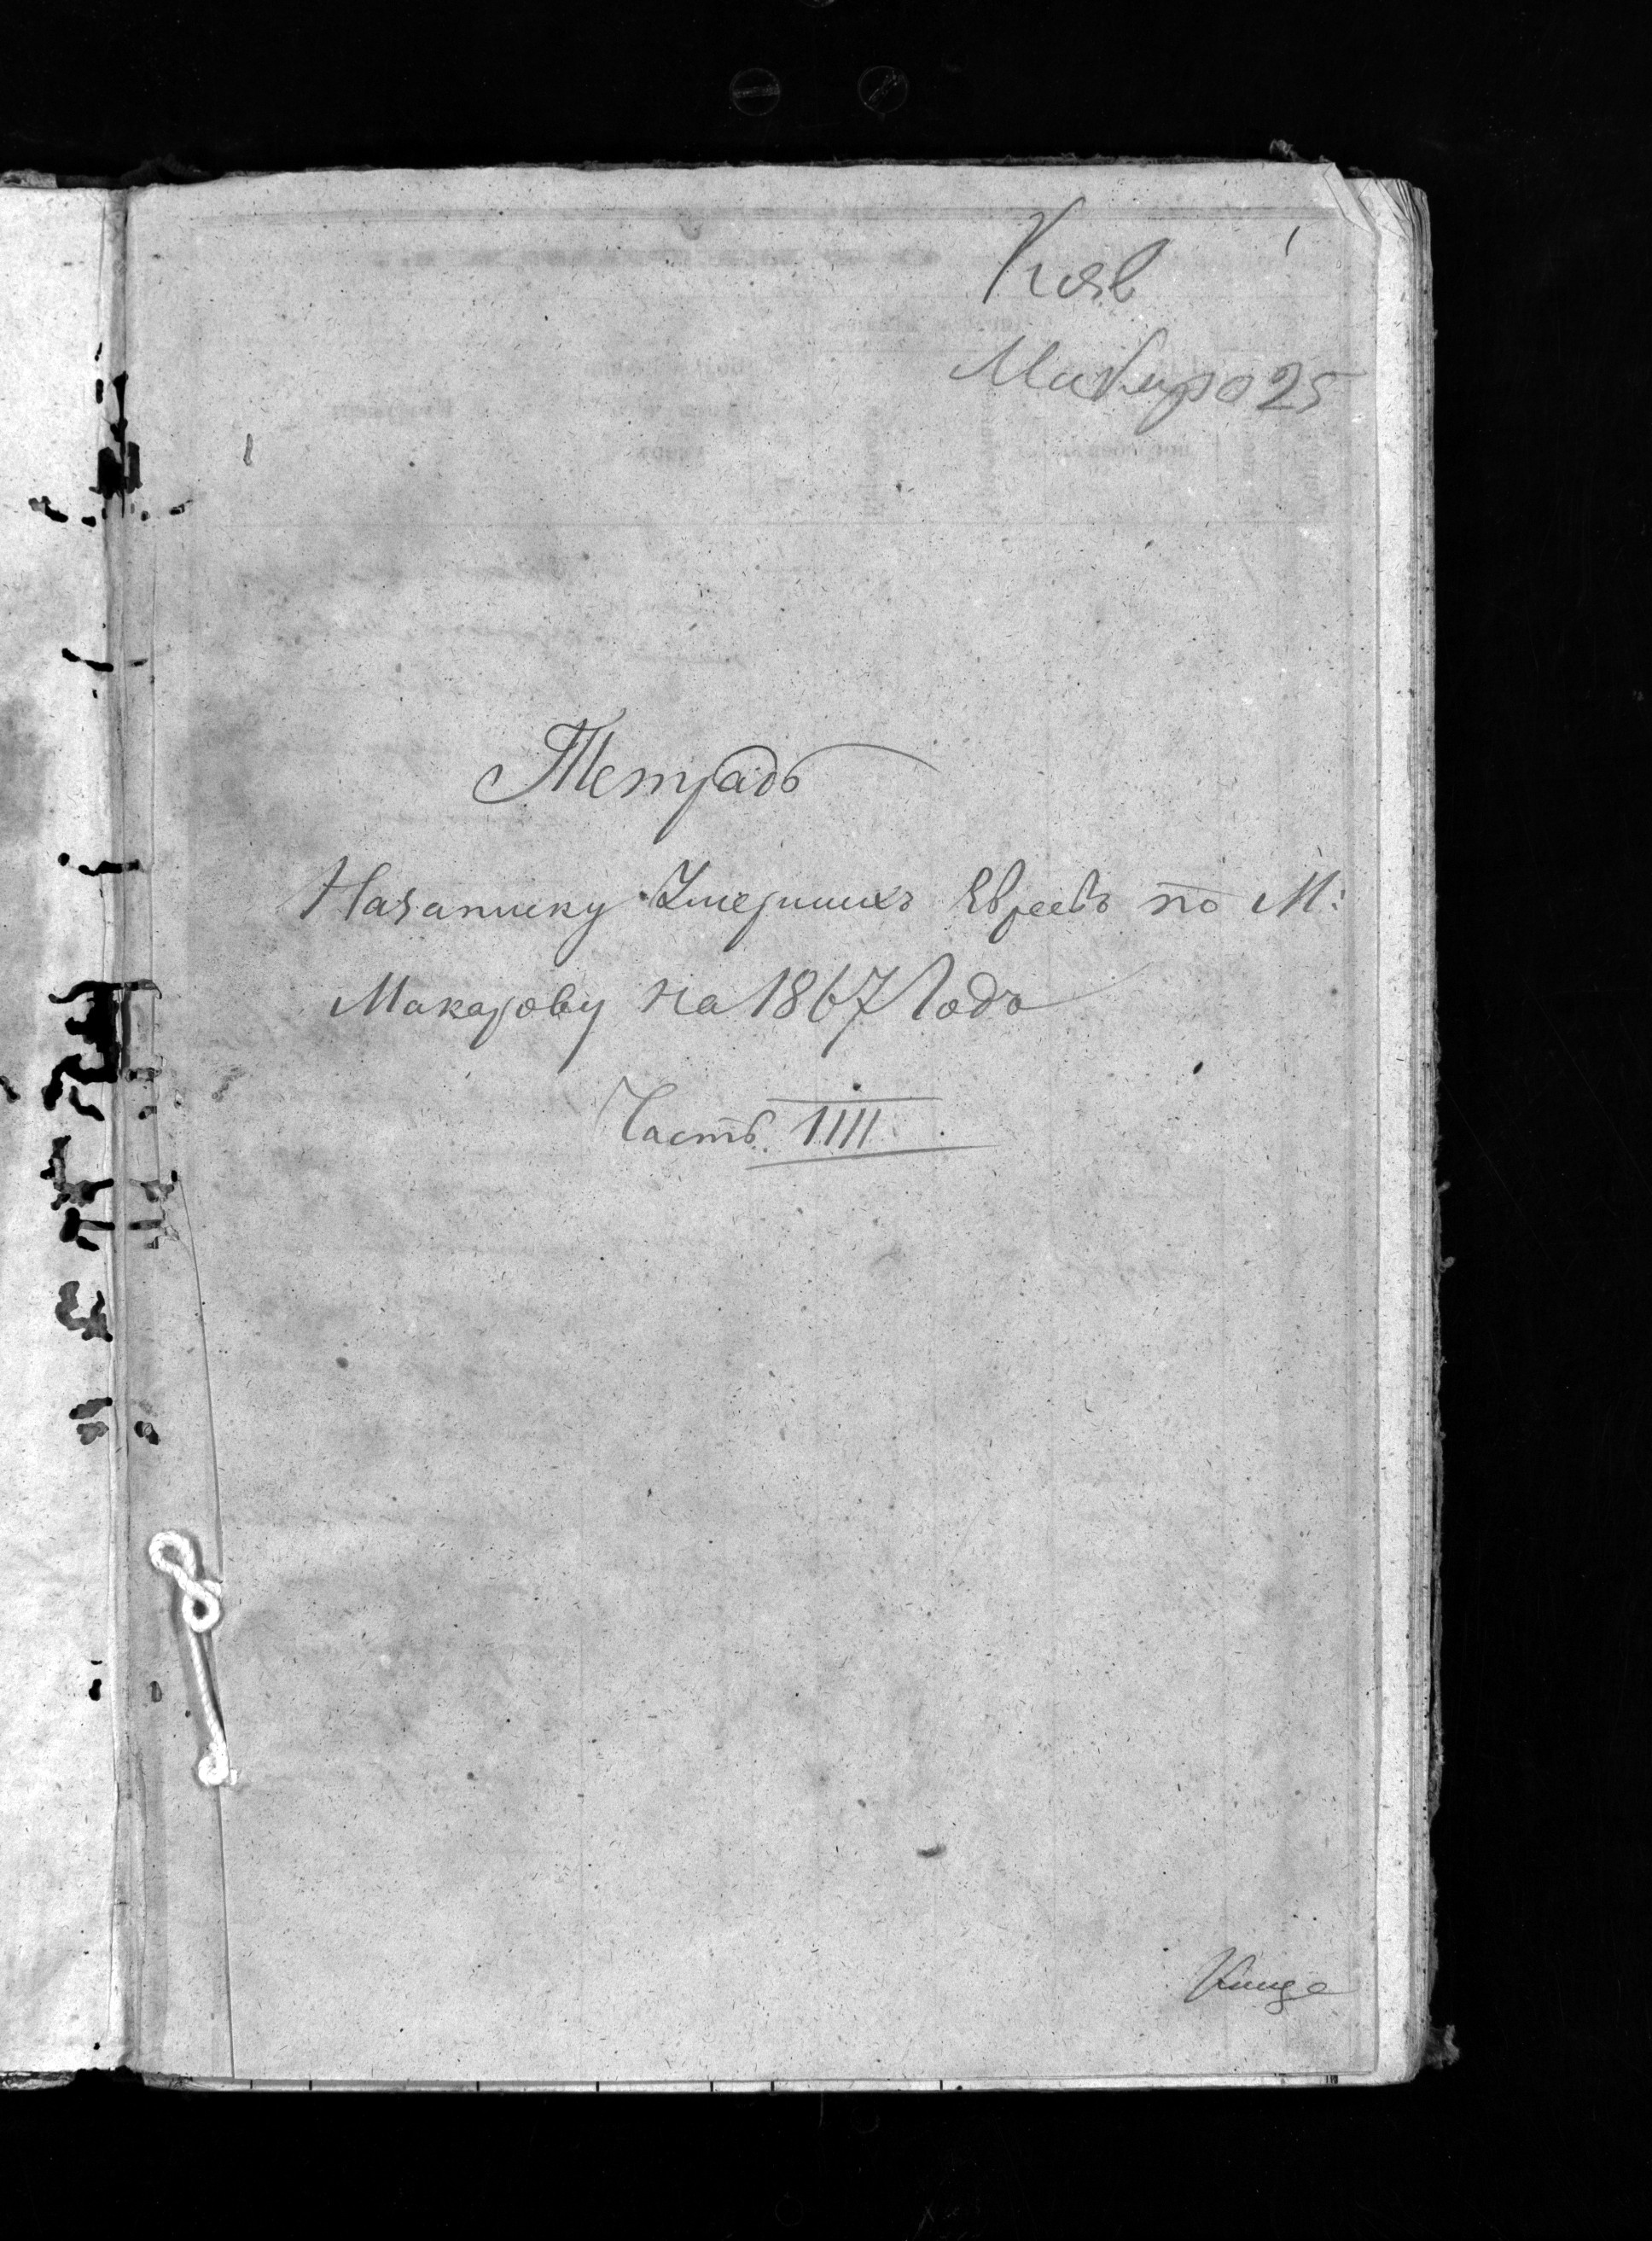 1
Кіев
Макаро 25
Тетрадь
На запику Умершихъ Евреевъ по М:
Макарову на 1867 Годъ
Часть IIII.